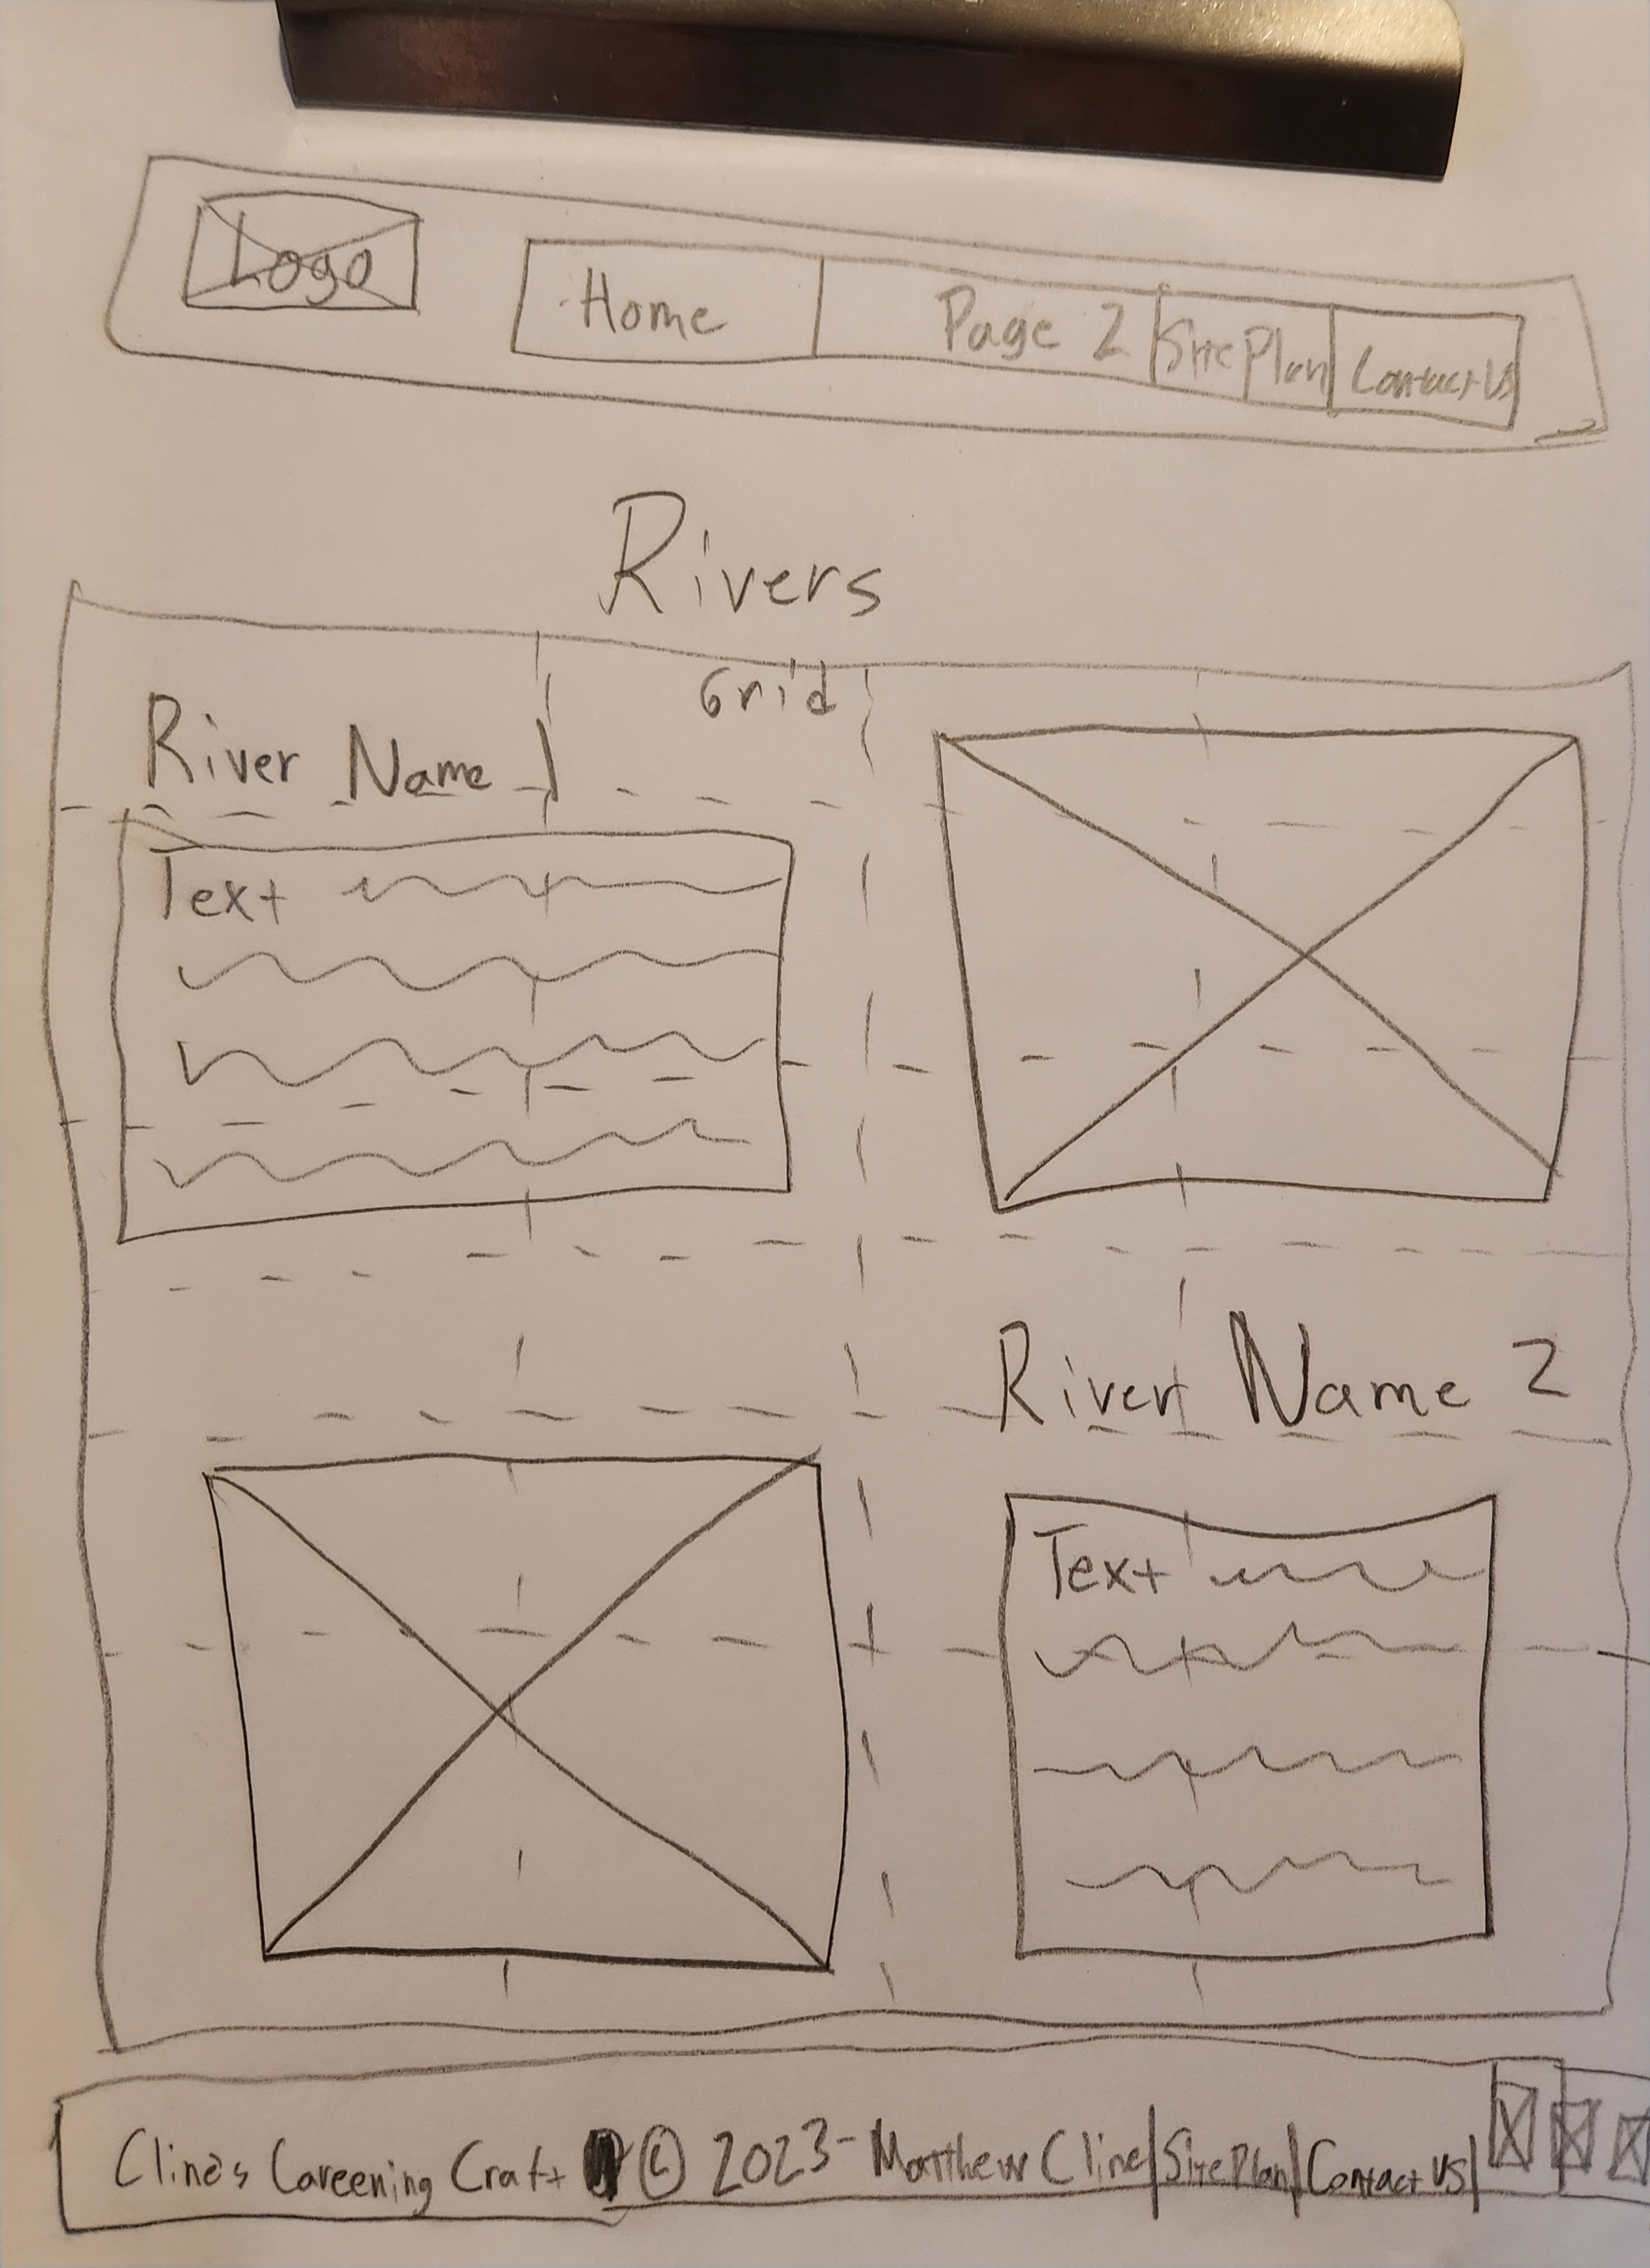 Logo
Home Page 2 Site Plan Contact Us
Rivers
Grid
River Name 1
Text
River Name 2
Text
Cline's Careening Craft © 2023 - Matthew Cline | Site Plan | Contact US |